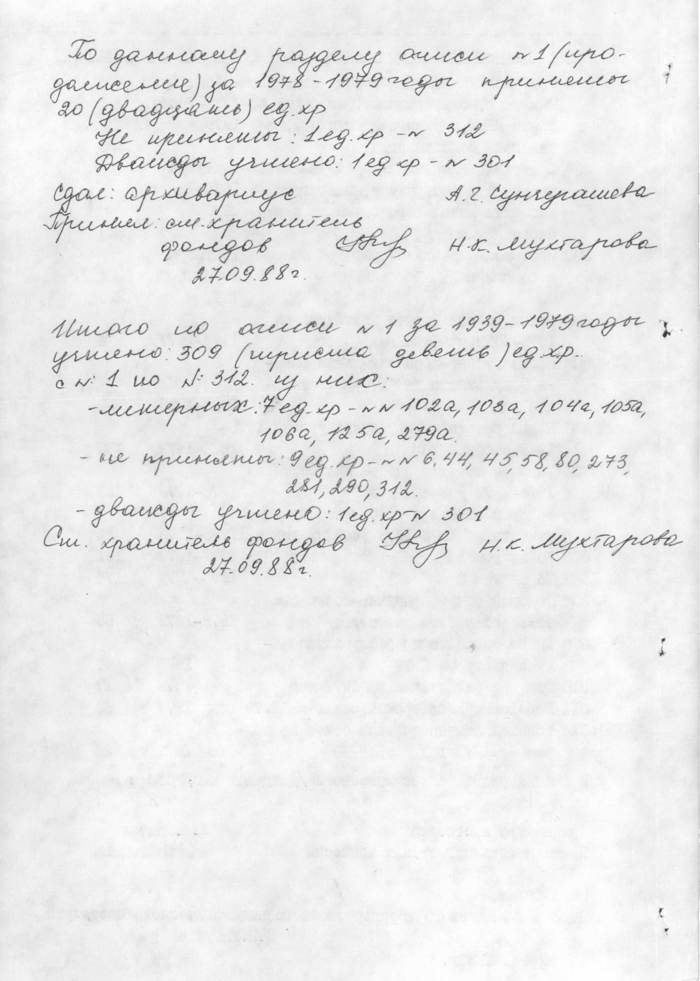 По данному разделу описи №1 (про-
должение) за 1978-1979 годы приняты
20 (двадцать) ед.хр
Не приняты: 1 ед.хр - № 312
Дважды учтено: 1 ед хр - № 301
Сдал: архивариус А.Г.
Принял: ст.хранитель
фондов Н.К. Мухтарова
27.09.88г.
Итого по описи №1 за 1939-1979 годы
учтено: 309 (триста девять) ед.хр.
с №: 1 по №: 312. из них:
-литерных: 7 ед.хр - №№ 102а, 103а, 104а, 105а,
106а, 125а, 279а.
- не приняты: 9 ед.хр - №№ 6, 44, 45, 58, 80, 273,
281, 290, 312.
- дважды учтено: 1 ед.хр № 301
Ст. хранитель фондов Н.К. Мухтарова
27.09.88г.